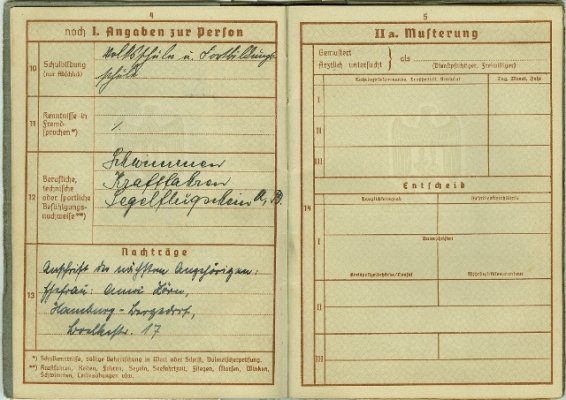 4
noch I. Angaben zur Person
10
Schulbildung
(nur Abschluß)
Volksschule u. Fortbildungs-
schule
11
Kenntnisse in
Fremd-
sprachen*)
./.
12
Berufliche,
technische
oder sportliche
Befähigungs-
nachweise**)
Schwimmen
Kraftfahren
Segelflugschein A, B.
Nachträge
13
Anschrift der nächsten Angehörigen:
Ehefrau: Anni
Hamburg-Bergedorf,
17
*) Schulkenntnisse, völlige Beherrschung in Wort oder Schrift, Dolmetscherprüfung.
**) Kraftfahren, Reiten, Fahren, Segeln, Seefahrtzeit, Fliegen, Morsen, Winken,
Schwimmen, Leibesübungen usw.
5
II a. Musterung
Gemustert
Ärztlich untersucht
als
(Dienstpflichtiger, Freiwilliger)
Tag, Monat, Jahr
I
II
III
Entscheid
14
Tauglichkeitsgrad
Unterschriften
I
II
III